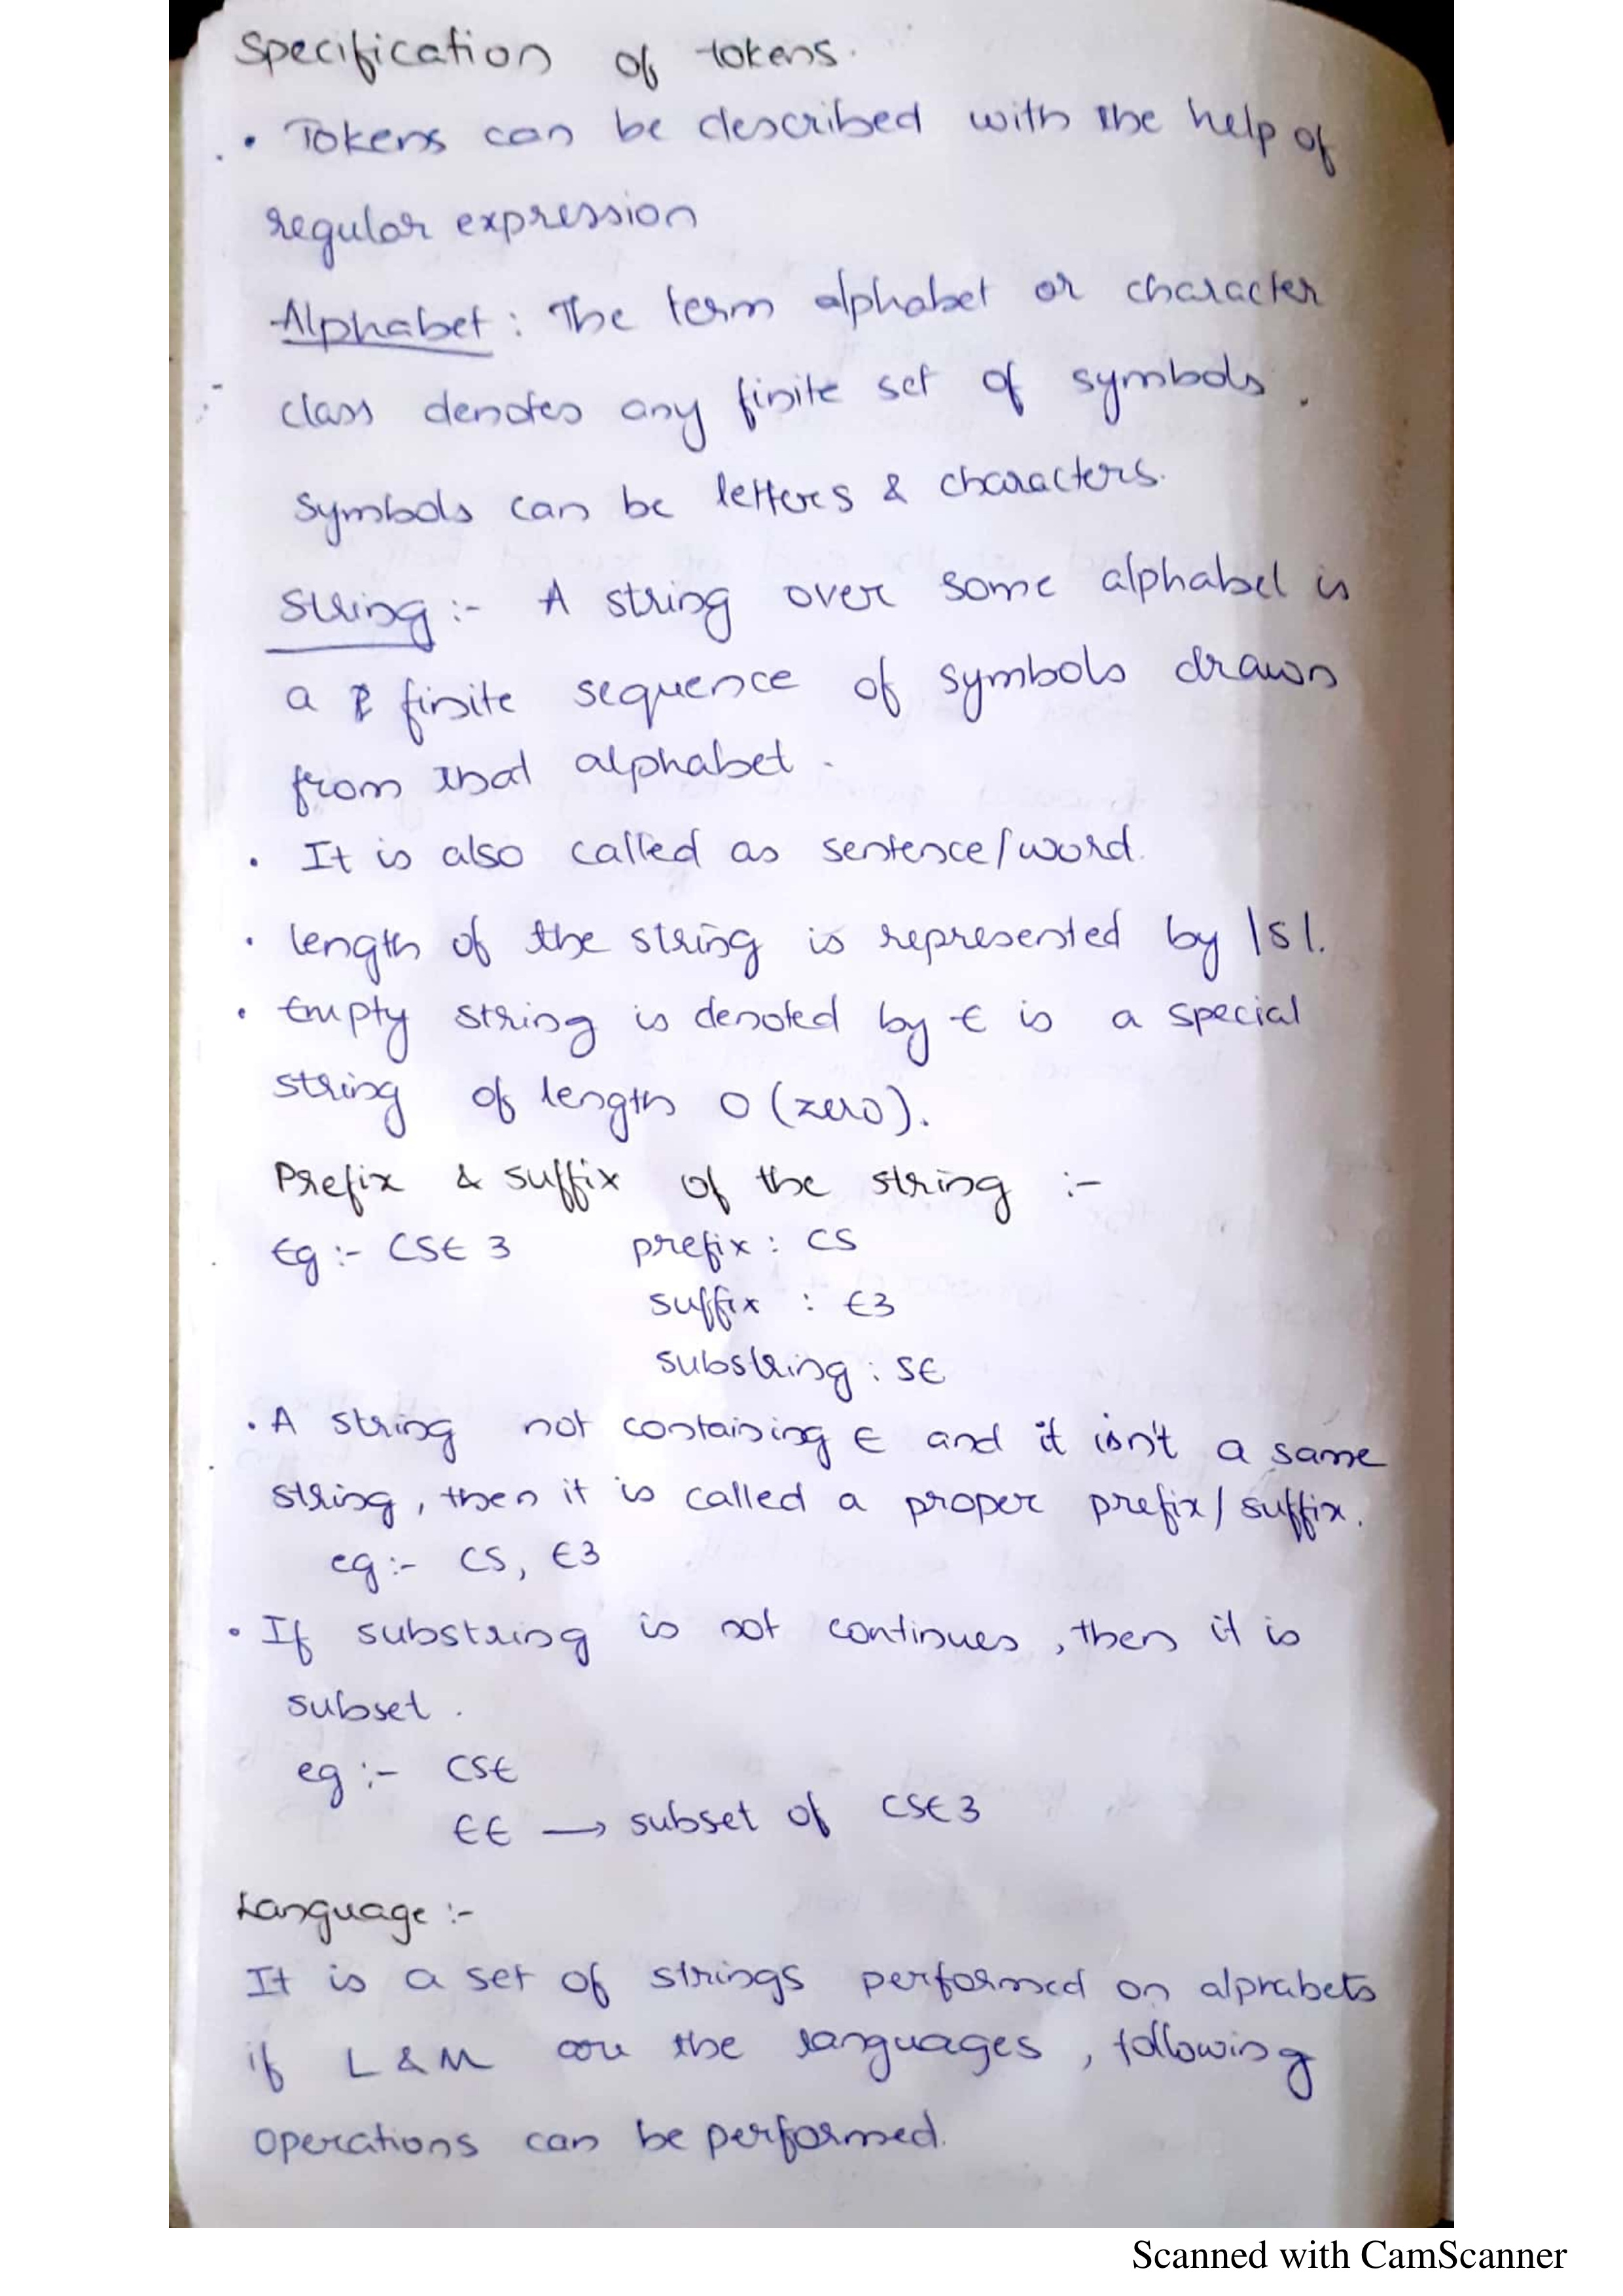 Specification of tokens.
• Tokens can be described with the help of
regular expression
Alphabet : The term alphabet or character
class denotes any finite set of symbols.
Symbols can be letters & characters.
String :- A string over some alphabet is
a finite sequence of symbols drawn
from that alphabet.
• It is also called as sentence/word.
• length of the string is represented by |s|.
• Empty string is denoted by ϵ is a special
string of length 0 (zero).
Prefix & suffix of the string :-
Eg :- CSE 3 prefix : CS
suffix : E3
substring : SE
• A string not containing ϵ and it isn't a same
string, then it is called a proper prefix/suffix.
eg :- CS, E3
• If substring is not continues, then it is
subset.
eg :- CSE
EE → subset of CSE3
Language :-
It is a set of strings performed on alphabets
if L & M are the languages, following
operations can be performed.
Scanned with CamScanner